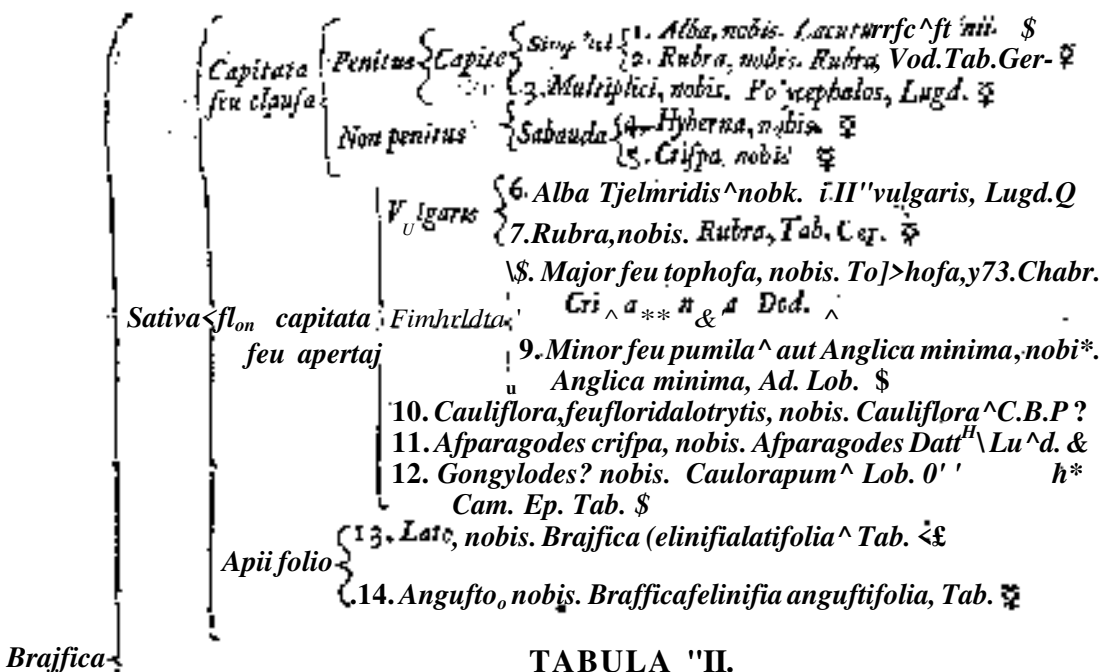 Capitata feu claufa
Penitus Capite Simp
1. Alba, nobis.
2. Rubra, nobis. Rubra, Vod.Tab.Ger-
3. Multiplici, nobis. Lugd.
Non penitus Sabauda
4. Hyberna, nobis.
5. Crifpa, nobis
Vulgaris
6. Alba Tjelmridis^nobk. i.II"vulgaris, Lugd.Q
7.Rubra,nobis. Rubra, Tab. Ger.
\$. Major feu tophofa, nobis. To]>hofa,y73.Chabr.
Sativa<fl on capitata Fimhrldta' Cri ^ a ** n & a Dod. ^
feu apertaj
9. Minor feu pumila^ aut Anglica minima, nobi*.
Anglica minima, Ad. Lob. $
10. Cauliflora,feufloridalotrytis, nobis. Cauliflora^C.B.P ?
11. Afparagodes crifpa, nobis. Afparagodes Datt H\ Lu^d. &
12. Gongylodes? nobis. Caulorapum^ Lob. 0' ' h*
Cam. Ep. Tab. $
Apii folio
13. Lato, nobis. Brajfica (elinifialatifolia^ Tab. <£
14. Angufto o nobis. Brafficafelinifia anguftifolia, Tab. ☿
Brajfica
TABULA "II.